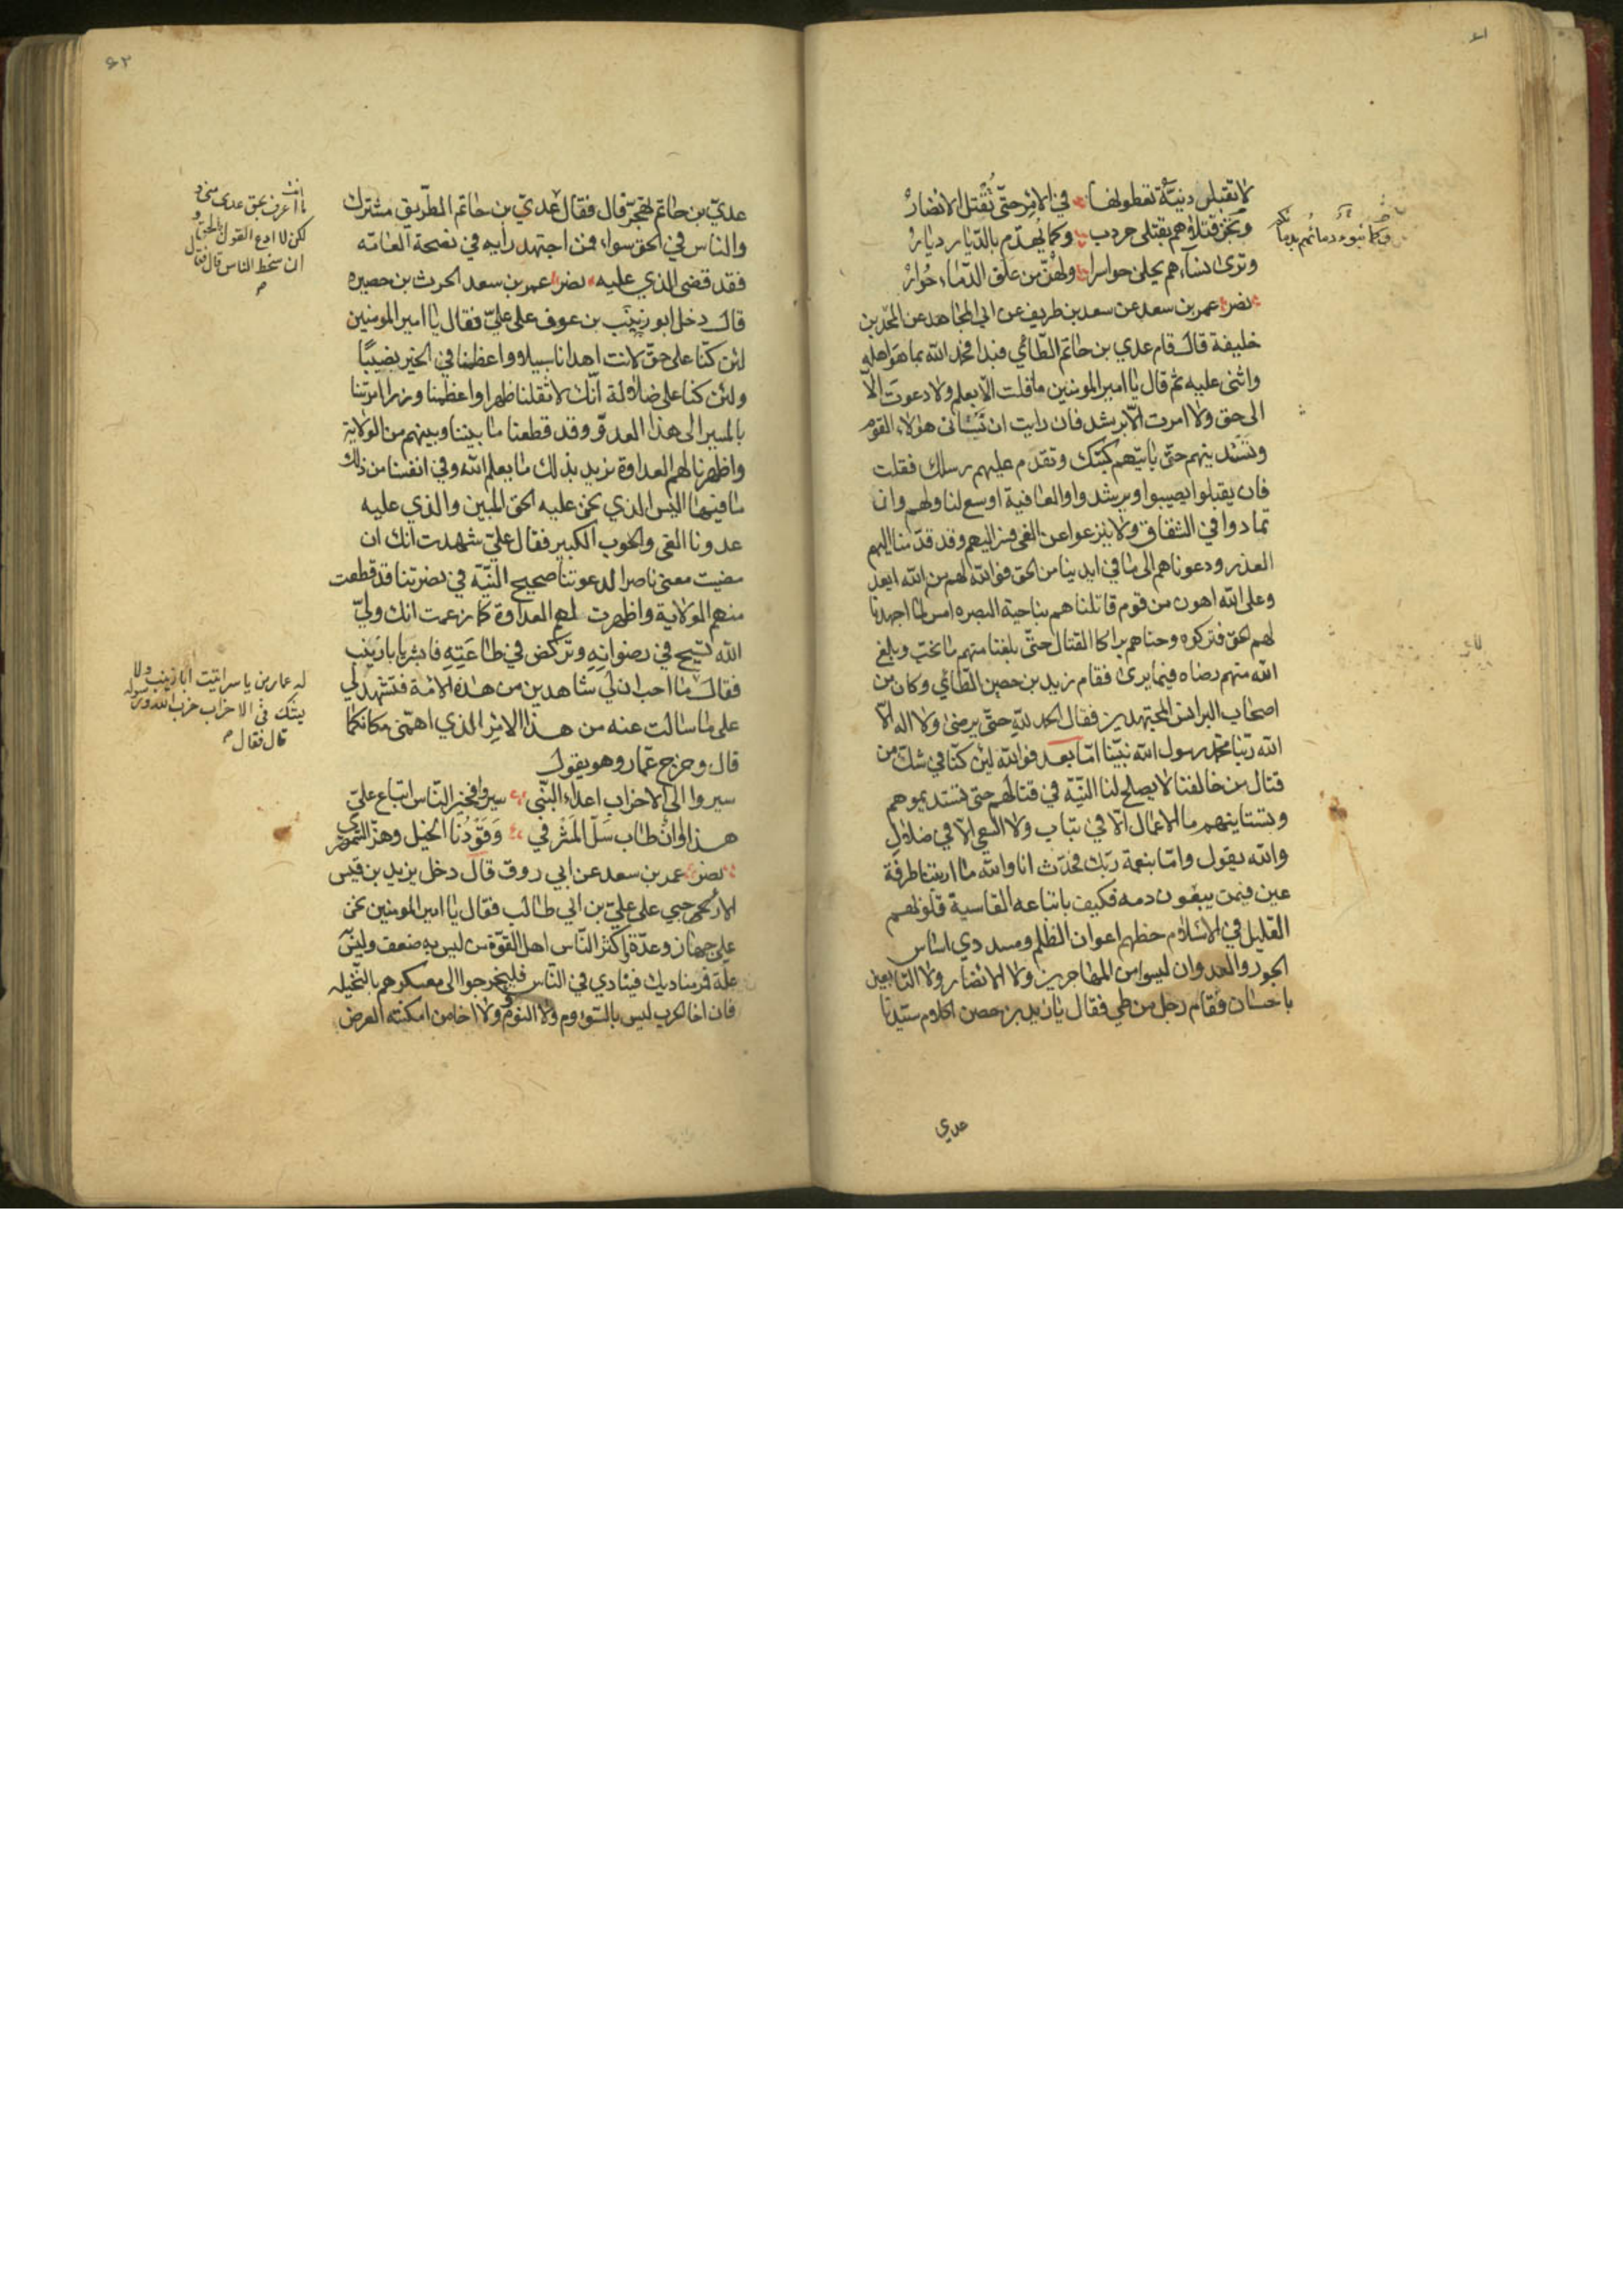 لا تقبلن دنية تعطونها في الامر حتى تقتل الانصار
وكما تبوء دمائهم بدمائكم
وتجز قتلاهم بقتلى حروب وكما يهدم بالديار ديار
وترى نساءهم يجلن حواسرا ولهن من علق الدماء خوار
نصر عمر بن سعد عن سعد بن طريف عن ابي المجاهد عن المحل بن
خليفة قال قام عدي بن حاتم الطائي فبدا فحمد الله بما هو اهله
واثنى عليه ثم قال يا امير المومنين ما قلت الا بعلم ولا دعوت الا
الى حق ولا امرت الا برشد فان رايت ان تستانى هؤلاء القوم
وتستديمهم حتى ياتيهم كتبك وتقدم عليهم رسلك فعلت
فان يقبلوا يصيبوا ويرشدوا والعافية اوسع لنا ولهم وان
تمادوا في الشقاق ولا ينزعوا عن الغى فسر اليهم وقد قدمنا اليهم
العذر ودعوناهم الى ما في ايدينا من الحق فوالله لهم من الله ابعد
وعلى الله اهون من قوم قاتلناهم بناحية البصره امس لما اجهدنا
لهم الحق فتركوه وحناهم براكا القتال حتى بلغنا منهم ما نحب وبلغ
الله منهم رضاه فيما يرى فقام زيد بن حصين الطائي وكان من
اصحاب البرانس المجتهدين فقال الحمد لله حتى يرضى ولا اله الا
الله ربنا محمد رسول الله نبينا اما بعد فوالله لئن كنا في شك من
قتال من خالفنا لا يصلح لنا النية في قتالهم حتى نستديموهم
ونستاينهم ما الاعمال الا في تباب ولا السعي الا في ضلال
والله يقول واما بنعمة ربك فحدث انا والله ما ارتبنا طرفة
عين فيمن يبغون دمه فكيف باتباعه القاسية قلوبهم
القليل في الاسلام حظهم اعوان الظلم ومسددي اساس
الجور والعدوان ليسوا من المهاجرين ولا الانصار ولا التابعين
باحسان فقام رجل من طي فقال يا زيد بن حصن اكلام سيدنا
عدي
۶۲
عدي بن حاتم تهجن قال فقال عدي بن حاتم الطريق مشترك
ما انت اعرف بحق عدى منى و
لكن لا ادع القول بالحق و
ان سخط الناس قال فقال
والناس في الحق سواء فمن اجتهد رايه في نصحة العامه
فقد قضى الذي عليه نصر عمر بن سعد الحرث بن حصيره
قال دخل ابو زينب بن عوف على علي فقال يا امير المومنين
لئن كنا على حق لانت اهدانا سبيلا واعظمنا في الخير نصيبا
ولئن كنا على ضلالة انك لاثقلنا ظهرا واعظمنا وزرا امرتنا
بالمسير الى هذا العدو وقد قطعنا ما بيننا وبينهم من الولاية
واظهرنا لهم العداوة نريد بذلك ما يعلم الله وفي انفسنا من ذلك
ما فيها اليس الذي نحن عليه الحق المبين والذي عليه
عدونا الغى والحوب الكبير فقال علي شهدت انك ان
مضيت معنى ناصرا لدعوتنا صحيح النية في نصرتنا قد قطعت
منهم الولاية واظهرت لهم العداوة كما زعمت انك ولي
الله تسيح في رضوانه وتركض في طاعته فابشر يا با زينب
له عمار بن ياسر اثبت ابا زينب ولا
يشك في الاحزاب حزب الله ورسوله
قال فقال
فقال ما احب ان لي شاهدين من هذه الامة فتشهد لي
على ما سالت عنه من هذا الامر الذي اهمني مكانكما
قال وخرج عمار وهو يقول
سيروا الى الاحزاب اعداء النبي سيروا فخير الناس اتباع علي
هذا اوان طاب سل المشرفي وقودنا الخيل وهز السمهري
نصر عمر بن سعد عن ابي روق قال دخل يزيد بن قيس
الارحبي على علي بن ابي طالب فقال يا امير المومنين نحن
على جهاز وعدة واكثر الناس اهل القوة من ليس به ضعف وليس
علة فمر مناديك فينادي في الناس فليخرجوا الى معسكرهم بالنخيله
فان اخا الحرب ليس بالسووم ولا النوم ولا اخا من امكنته الفرص